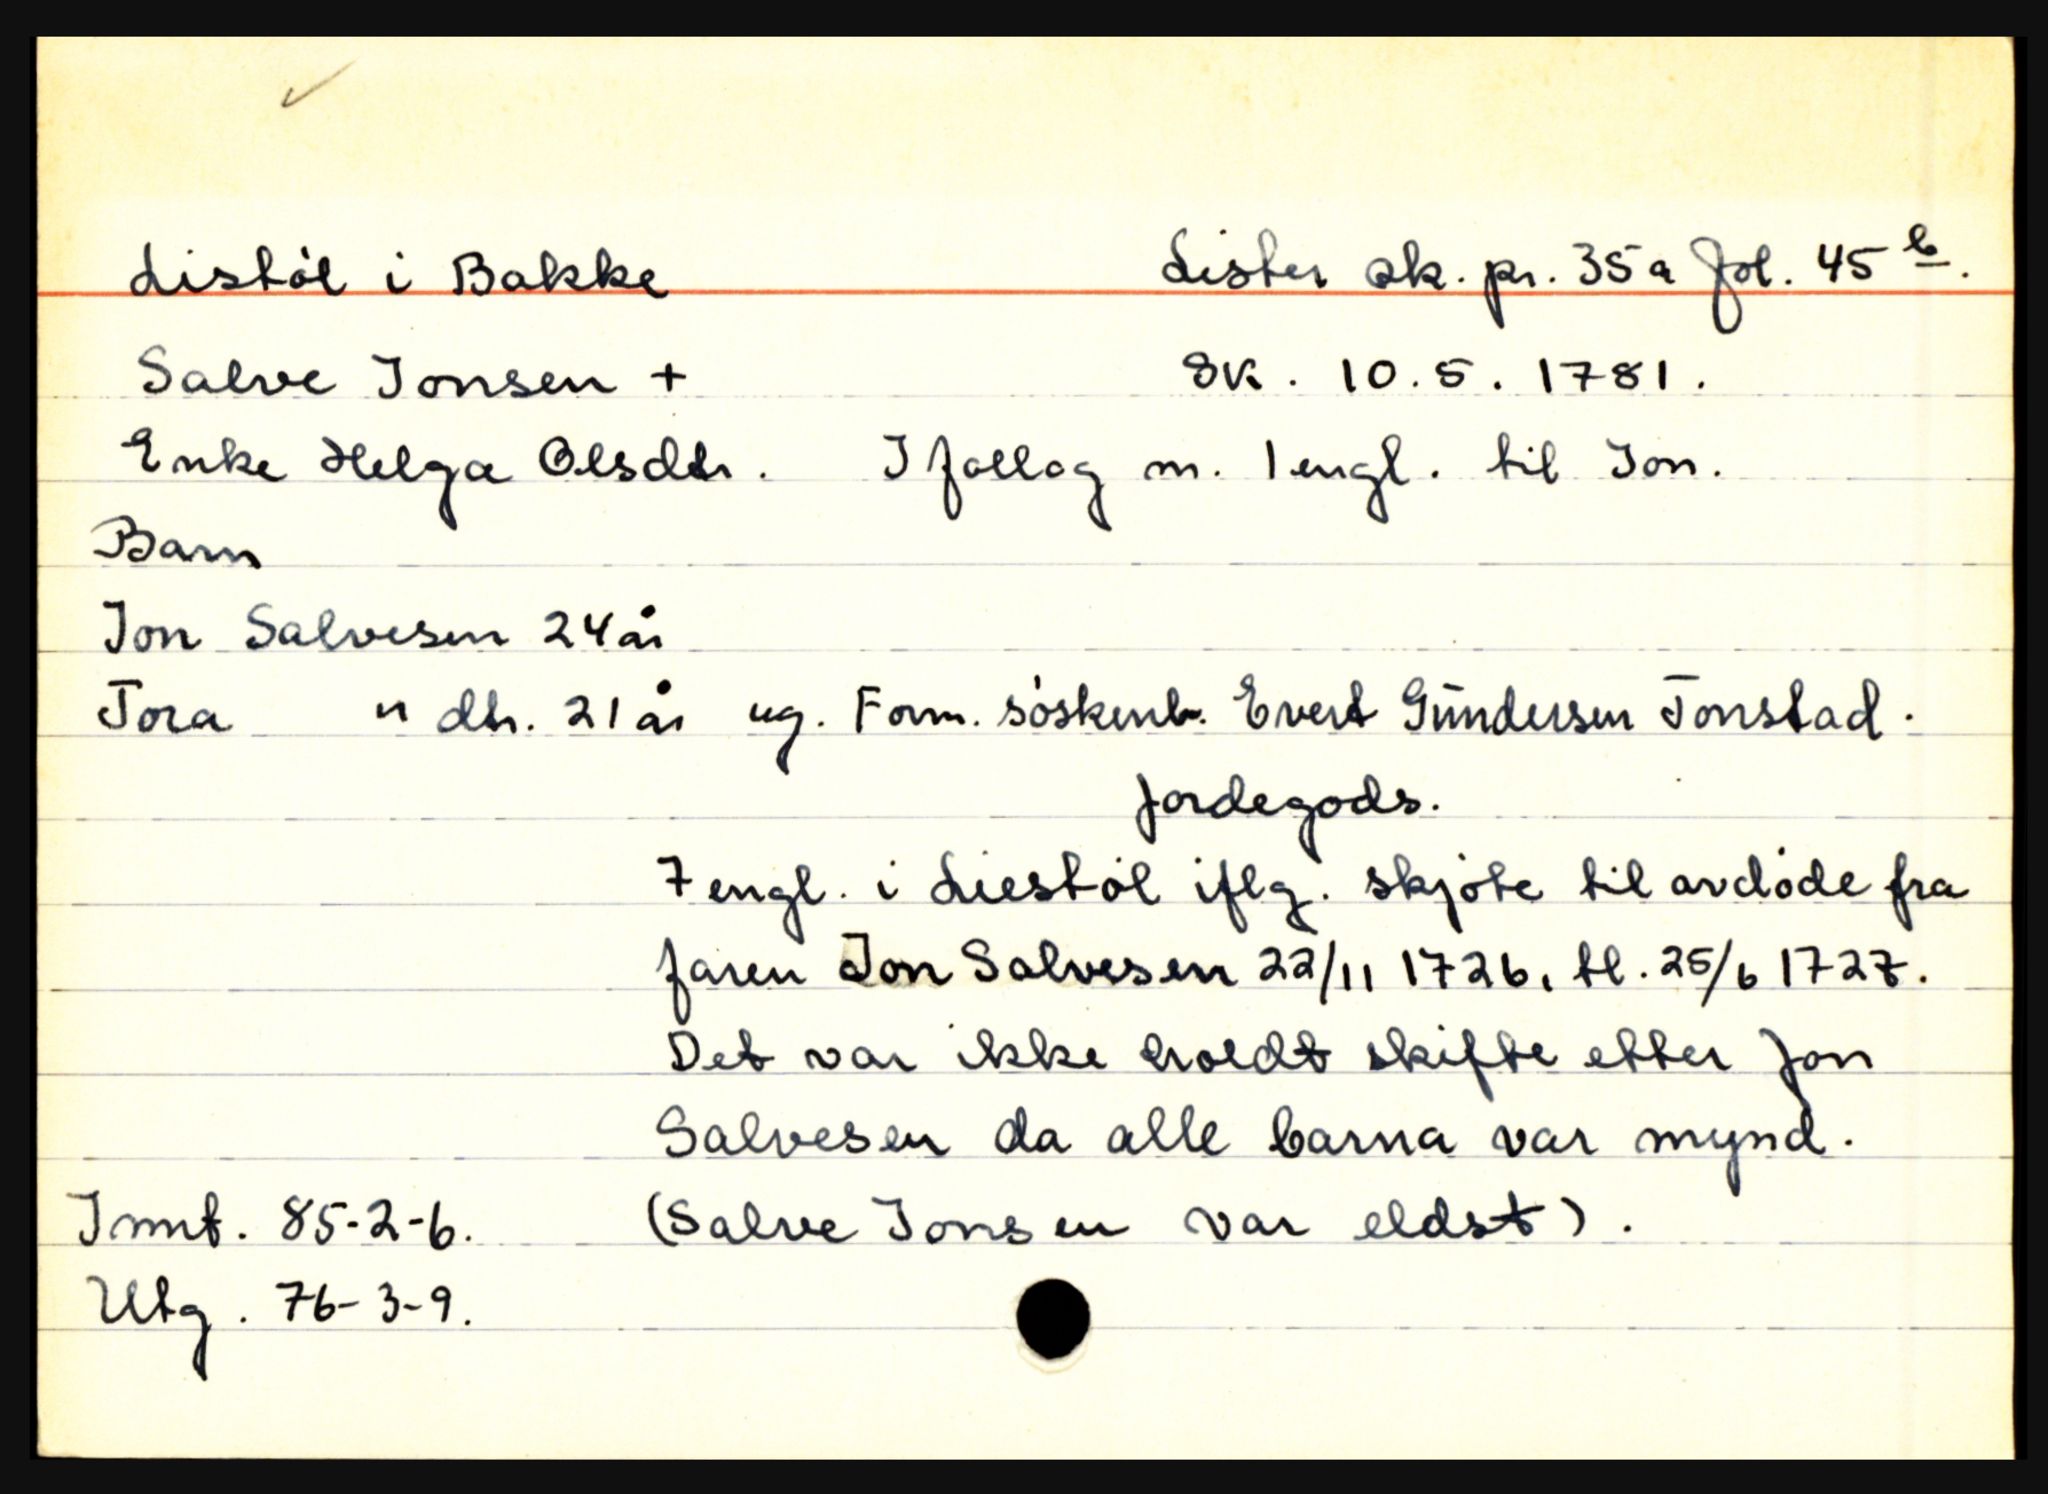 Listøl i Bakke Lister sk. pr. 35a fol. 45 b.
Salve Jonsen + Sk. 10.5.1781.
Enke Helga Olsdtr. I fellog m. 1 engl. til Jon.
Barn
Jon Salvesen 24 år
Tora " dtr. 21 år ug. Form. søskenb. Evert Gundersen Tonstad.
Jordegods.
7 engl. i Liestøl iflg. skjøte til avdøde fra
faren Jon Salvesen 22/11 1726, tl. 25/6 1727.
Det var ikke holdt skifte etter Jon
Salvesen da alle barna var mynd.
Innt. 85-2-6. (Salve Jonsen var eldst).
Utg. 76-3-9.